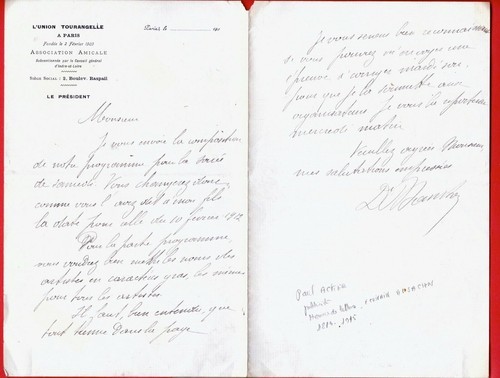 L'UNION TOURANGELLE
A PARIS
Fondée le 2 Février 1903
ASSOCIATION AMICALE
Subventionnée par le Conseil général
d'Indre-et-Loire
SIÈGE SOCIAL : 2, Boulev. Raspail
LE PRÉSIDENT
Paris, le 191
Monsieur
Je vous envoie la composition
de notre programme pour la soirée
de samedi. Vous changerez donc,
comme vous l'avez dit à mon fils
la date pour celle du 10 février 1912
Pour la partie programme,
vous voudrez bien mettre les noms des
artistes en caractères gras, les mêmes
pour tous les artistes.
Il faut, bien entendu, que
tout tienne dans la page
Je vous serais bien reconnaissant
si vous pouviez m'envoyer une
épreuve à corriger mardi soir
pour que je la soumette aux
organisateurs. Je vous la reporterais
mercredi matin.
Veuillez agréer Monsieur
mes salutations empressées
Dr
Paul ACKER
publiciste
Homme de lettres